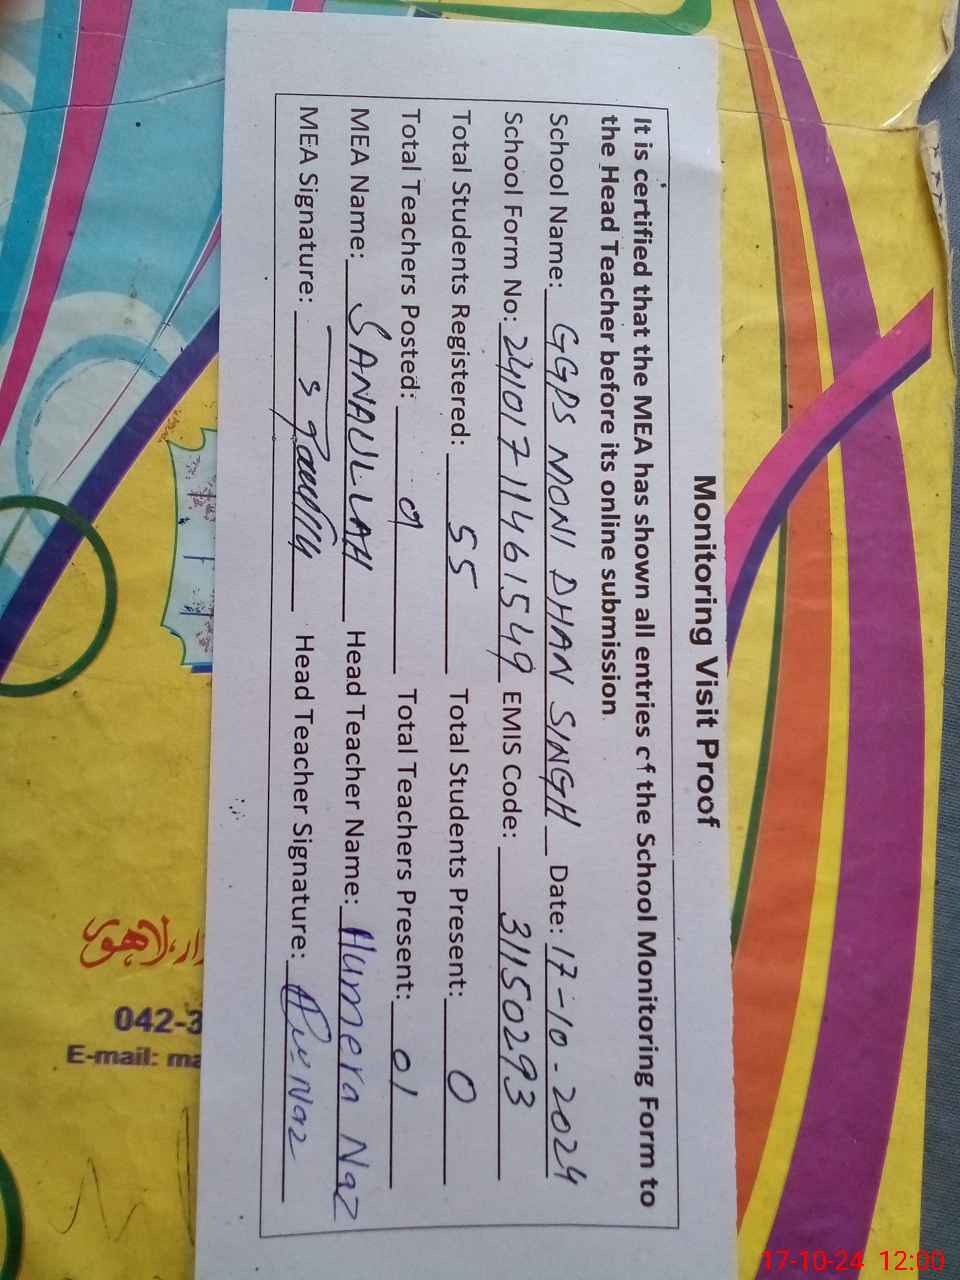 Monitoring Visit Proof
It is certified that the MEA has shown all entries of the School Monitoring Form to
the Head Teacher before its online submission
School Name: GGPS MONI DHAN SINGH Date: 17-10-2024
School Form No: 24101711461549 EMIS Code: 31150293
Total Students Registered: 55 Total Students Present: 0
Total Teachers Posted: 01 Total Teachers Present: 01
MEA Name: SANAULLAH Head Teacher Name: Humera Naz
MEA Signature: Head Teacher Signature: Naz
لاہور
042-3
E-mail: ma
17-10-24 12:00